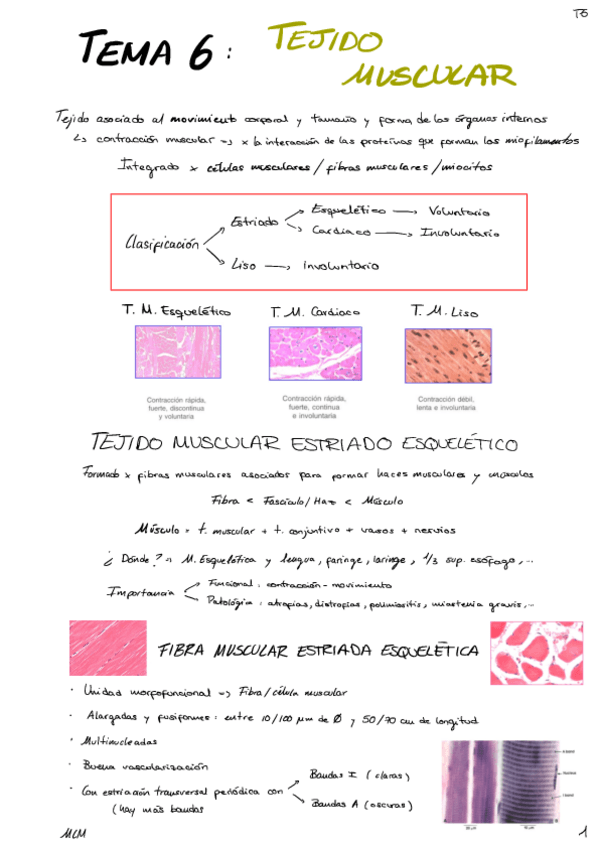 T6
TEMA 6: TEJIDO
MUSCULAR
Tejido asociado al movimiento corporal y tamaño y forma de los órganos internos
↳ contracción muscular -> x la interacción de las proteínas que forman los miofilamentos
Integrado x células musculares / fibras musculares / miocitos
Clasificación
Estriado
Esquelético → Voluntario
Cardiaco → Involuntario
Liso → Involuntario
T. M. Esquelético
T. M. Cardiaco
T. M. Liso
Contracción rápida,
fuerte, discontinua
y voluntaria
Contracción rápida,
fuerte, continua
e involuntaria
Contracción débil,
lenta e involuntaria
TEJIDO MUSCULAR ESTRIADO ESQUELÉTICO
Formado x fibras musculares asociadas para formar haces musculares y músculos
Fibra < Fascículo/Haz < Músculo
Músculo = t. muscular + t. conjuntivo + vasos + nervios
¿Dónde? -> M. Esquelética y lengua, faringe, laringe, 1/3 sup. esófago,...
Importancia
Funcional: contracción - movimiento
Patológica: atrofias, distrofias, polimiositis, miastenia gravis,...
FIBRA MUSCULAR ESTRIADA ESQUELÉTICA
· Unidad morfofuncional -> Fibra/célula muscular
· Alargadas y fusiformes: entre 10/100 μm de Ø y 50/70 cm de longitud
· Multinucleadas
· Buena vascularización
· Con estriación transversal periódica con
(hay más bandas
Bandas I (claras)
Bandas A (oscuras)
MLM
1